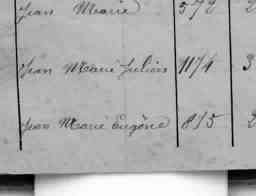 Jean Marie 572 2
Jean Marie Julien 1174 3
Jean Marie Eugène 815 2